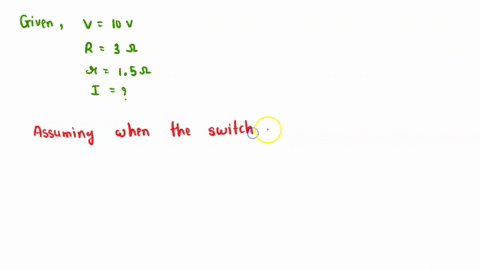 Given, V = 10 V
R = 3 Ω
r = 1.5 Ω
I = ?
Assuming when the switch